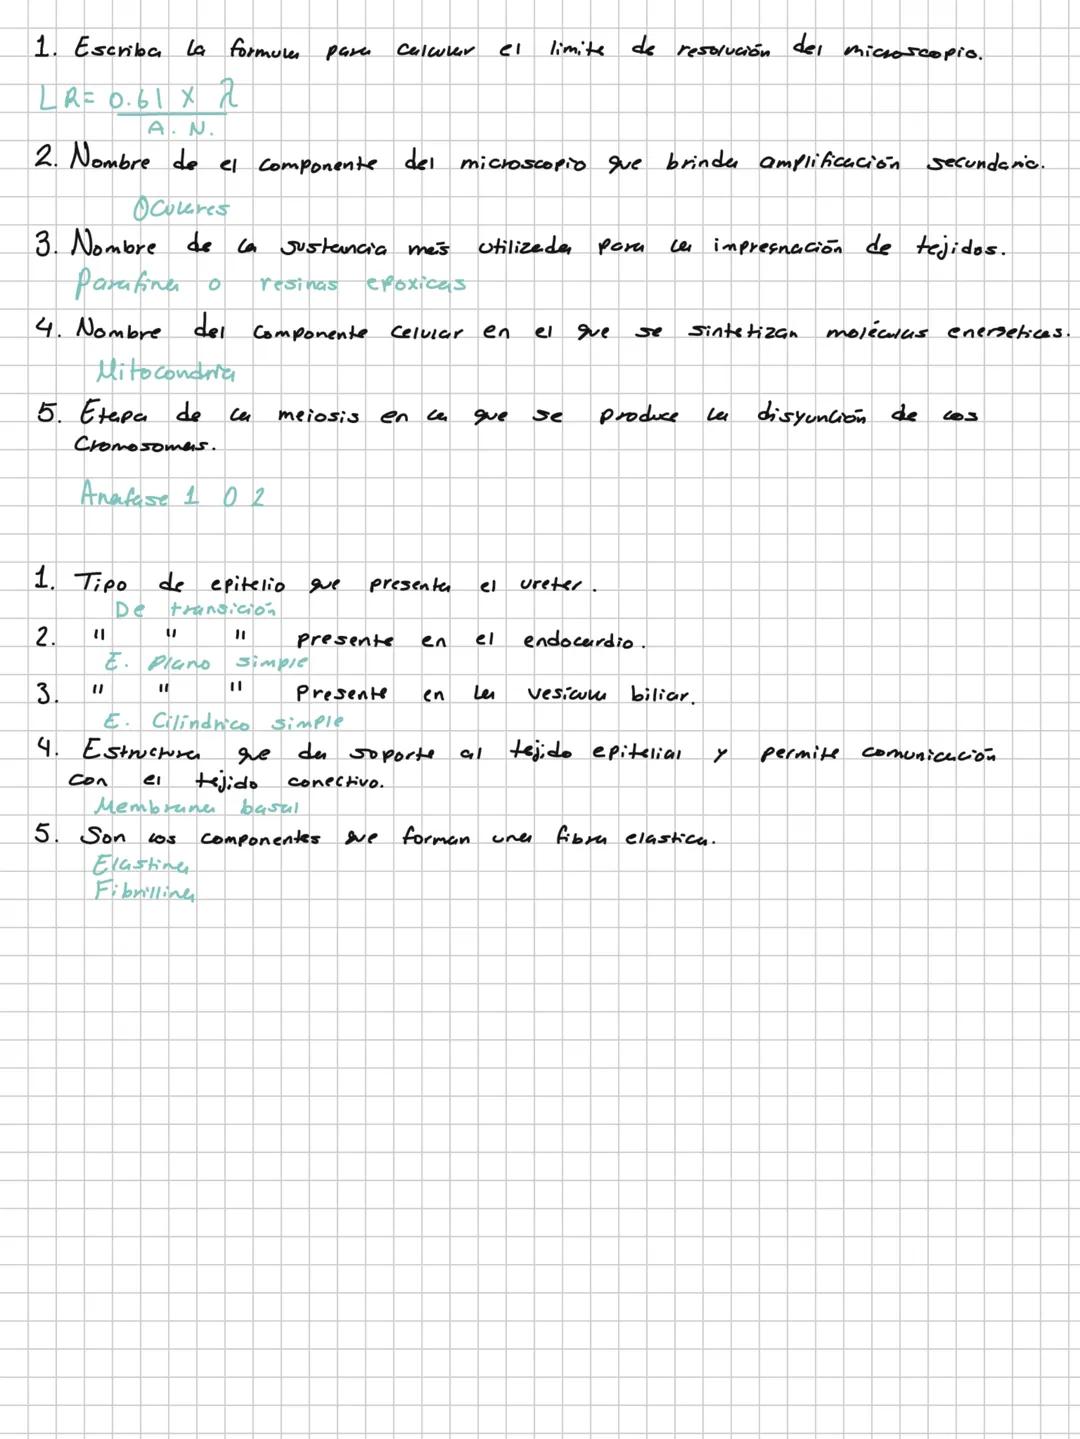 1. Escriba la formula para calcular el limite de resolución del microscopio.
LR= 0.61 x λ
A. N.
2. Nombre de el componente del microscopio que brinda amplificación secundaria.
Oculares
3. Nombre de la sustancia más utilizada para la impregnación de tejidos.
Parafina o resinas epoxicas
4. Nombre del componente celular en el que se sintetizan moléculas energeticas.
Mitocondria
5. Etapa de la meiosis en la que se produce la disyunción de los
Cromosomas.
Anafase 1 o 2
1. Tipo de epitelio que presenta el ureter.
De transición
2. " " " presente en el endocardio.
E. Plano simple
3. " " " Presente en la vesicula biliar.
E. Cilíndrico simple
4. Estructura que da soporte al tejido epitelial y permite comunicación
con el tejido conectivo.
Membrana basal
5. Son los componentes que forman una fibra elastica.
Elastina
Fibrillina